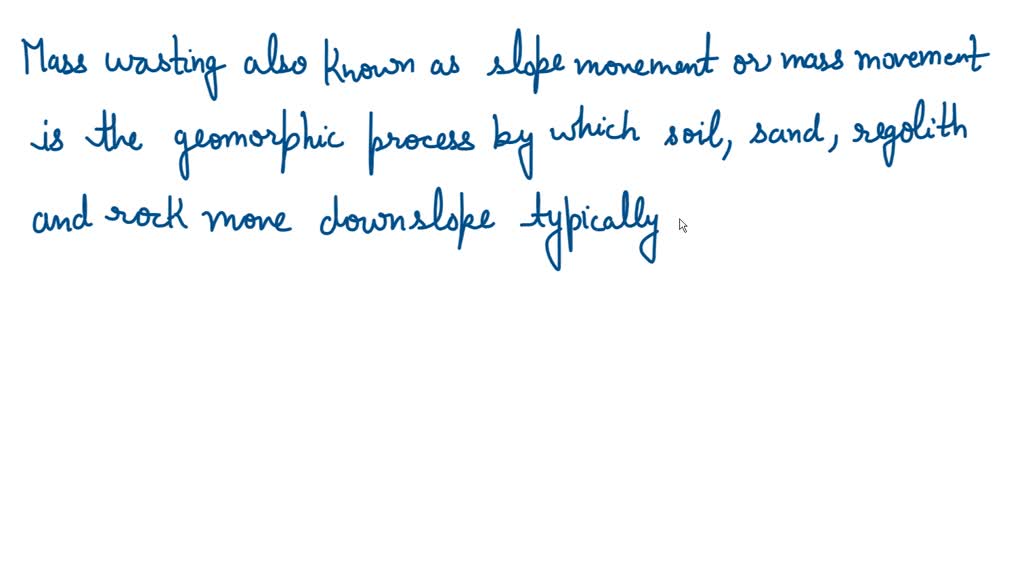 Mass wasting also known as slope movement or mass movement
is the geomorphic process by which soil, sand, regolith
and rock move downslope typically